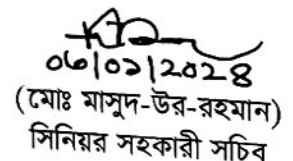 ০৬|০২|২০২৪
(মোঃ মাসুদ-উর-রহমান)
সিনিয়র সহকারী সচিব